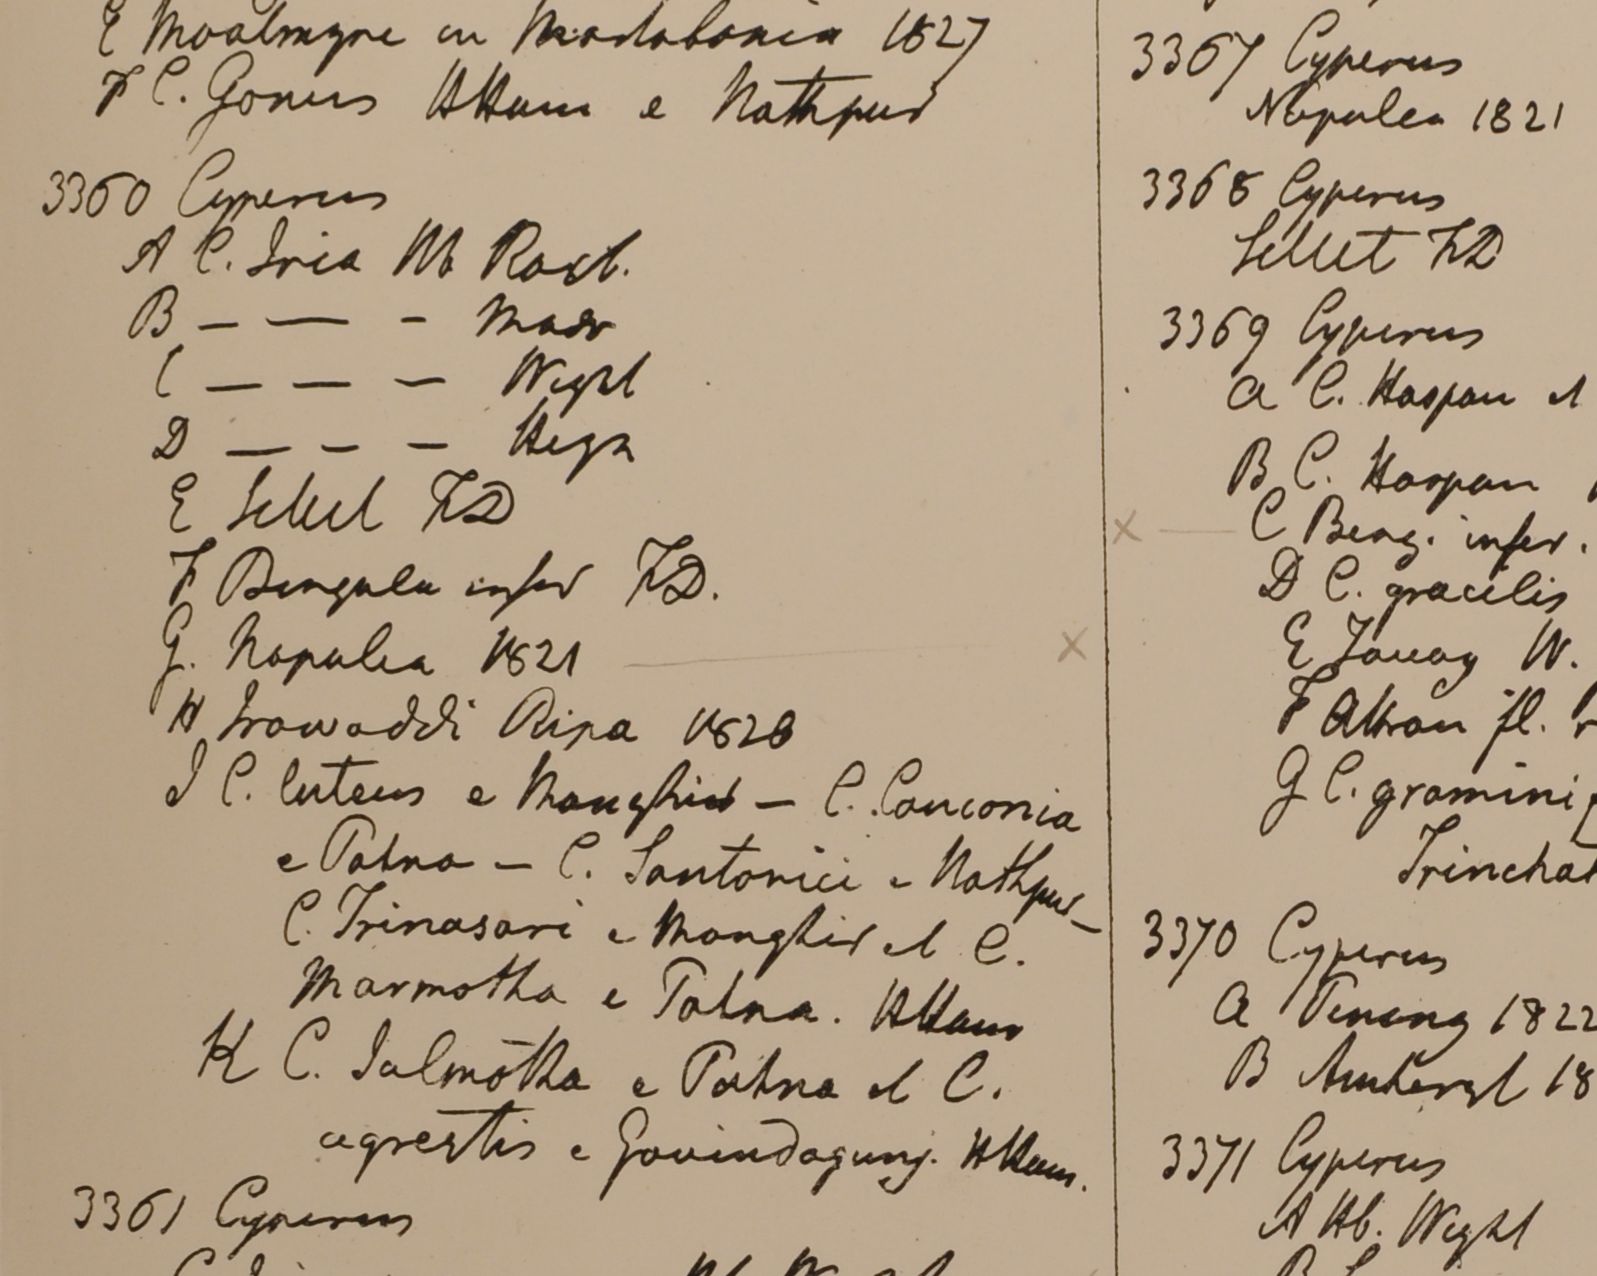 E Moalmyne in Martabania 1827
F C. Gonus HHam e Nathpur
3360 Cyperus
A C. Iria Hb Roxb.
B — — — Madr
C — — — Wight
D — — — Heyn
E Sillet FD
F Bengala infer FD.
G. Napalea 1821
H Irawaddi Ripa 1826
I C. luteus e Monghir — C. Couconia
e Patna — C. Santonici e Nathpur —
C. Trinasari e Monghir et C.
Marmotha e Patna. HHam
K C. Salmotha e Patna et C.
agrestis e Govindagunj. HHam.
3361 Cyperus
3367 Cyperus
Napalea 1821
3368 Cyperus
Sillet FD
3369 Cyperus
a C. Haspan et
B C. Haspan
C Beng. infer.
D C. gracilis
E Tavoy W.
F Attran fl.
G C. gramini
Trinchat
3370 Cyperus
a Penang 1822
B Amherst 18
3371 Cyperus
A Hb. Wight